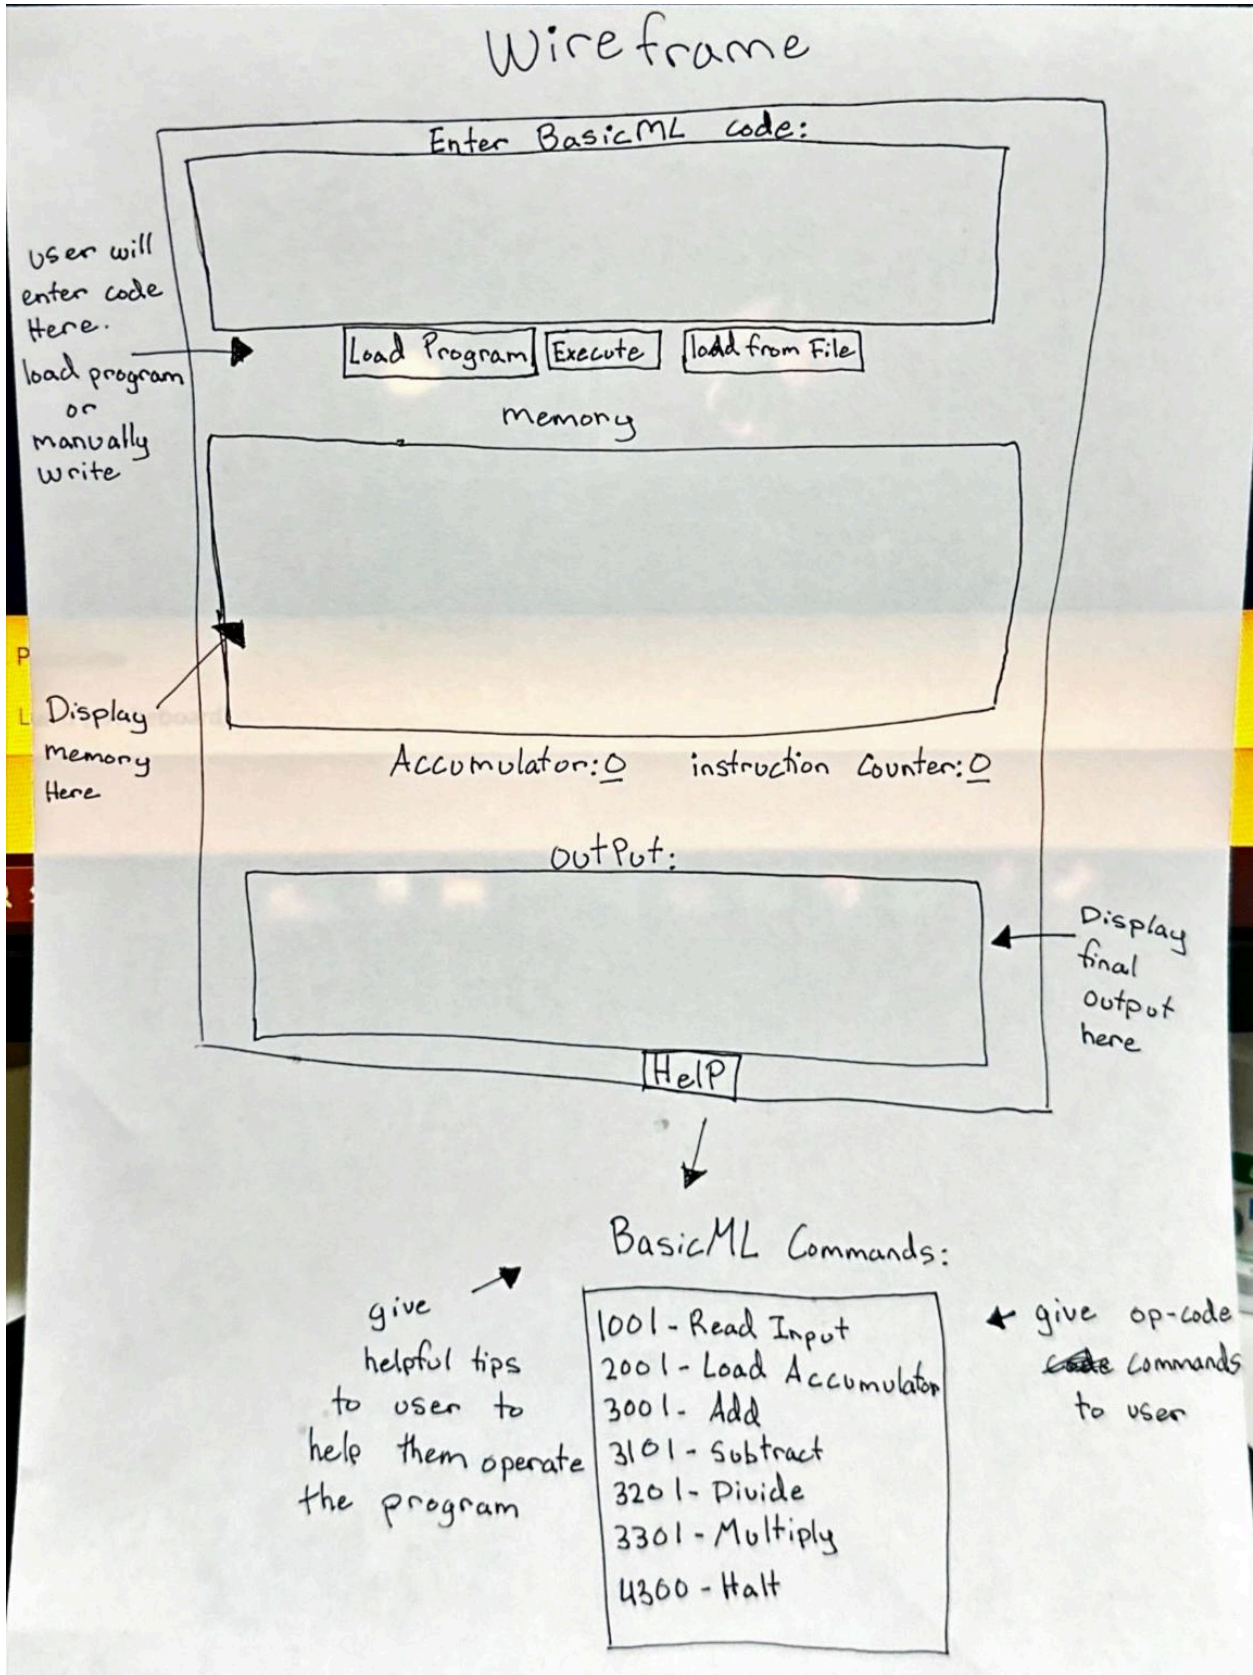 Wireframe
Enter BasicML code:
User will
enter code
Here.
load program
or
manually
write
Load Program
Execute
load from File
Memory
Display
memory
Here
Accumulator: 0
instruction Counter: 0
OutPut:
Display
final
output
here
HelP
BasicML Commands:
give
helpful tips
to user to
help them operate
the program
1001 - Read Input
2001 - Load Accumulator
3001 - Add
3101 - Subtract
3201 - Divide
3301 - Multiply
4300 - Halt
give op-code
commands
to user